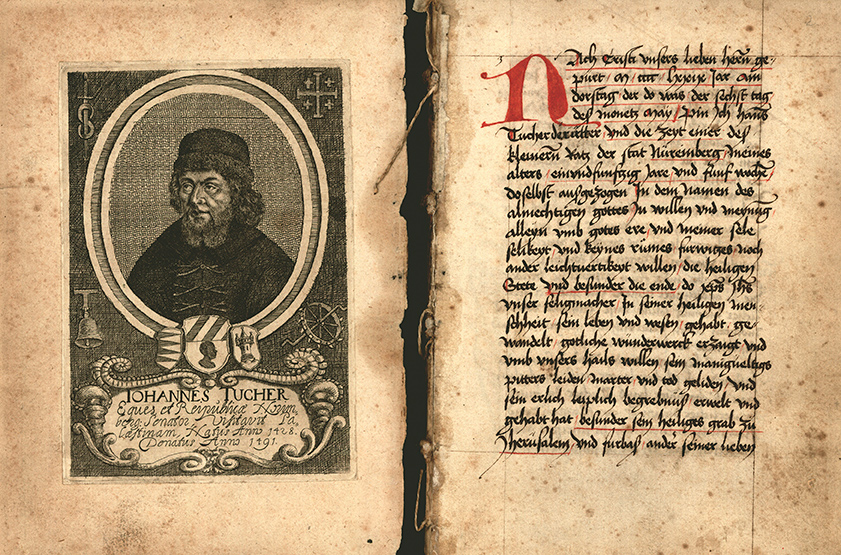 IOHANNES TUCHER
Eques et Reipublicæ Norim
berg. Senator. Visitavit Pa
læstinam. Natus Anno 1428.
Denatus Anno 1491.
Nach Cristi vnsers lieben herñ ge-
purt / Jar am
dorstag der do was der sechst tag
des monetz May / Pin Ich hanns
Tucher der elter Vnd die Zeyt einer des
kleinern Ratz der stat Nüremberg / meines
alters / einvndfunfftzig Jare vnd funf wochē
Doselbst auszgezogen In dem Namen des
almechtigen gottes / In willen vnd meynūg
alleyn vmb gottes ere / vnd meiner sele
selikeyt / vnd keynes rümes furwitzes noch
ander leichtvertikeyt willen / die heiligen
Stete vnd besunder die ende do
vnser seligmacher In seiner heiligen men-
schheit sein leben vnd wesen gehabt / ge-
wandelt / gotliche wunderwerck erzaigt vnd
vmb vnsers hails willen sein manigueltigs
pitters leiden marter vnd tod geliden / Vnd
sein erlich leiplich begrebnüs erwelt vnd
gehabt hat / besunder sein heiliges grab zu
Jherusalem / vnd furbas ander seiner lieben